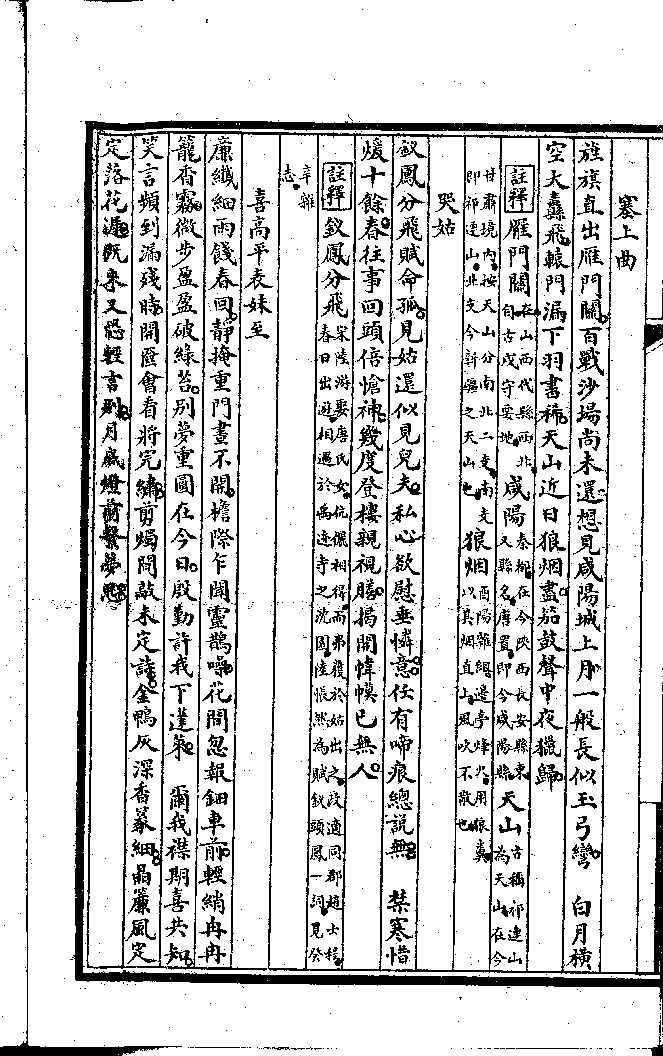 塞上曲
旌旗直出雁門關百戰沙場尚未還想見咸陽城上月一般長似玉弓彎　白月橫
空大纛飛轅門漏下羽書稀天山近日狼烟盡笳鼓聲中夜獵歸
註釋　雁門關在山西代縣西北自古戍守要地　咸陽秦都在今陝西長安縣東又縣名唐置即今咸陽縣　天山古稱祁連山為天山在今
甘肅境內按天山分南北二支南支即祁連山北支今新疆之天山也　狼烟酉陽雜俎邊亭烽火用狼糞以其烟直上風吹不散也
哭姑
釵鳳分飛賦命孤見姑還似見兒夫私心欲慰垂憐意任有啼痕總說無　禁寒惜
煖十餘春往事回頭倍愴神幾度登樓親視膳揭開幃幙已無人
註釋　釵鳳分飛宋陸游娶唐氏女伉儷相得而弗獲於姑出之改適同郡趙士程春日出遊相遇於禹迹寺之沈園陸悵然為賦釵頭鳳一詞見癸
辛雜志
喜高平表妹至
廉纖細雨餞春回靜掩重門晝不開檐際乍聞靈鵲噪花間忽報鈿車前輕綃冉冉
籠香霧微步盈盈破綠苔別夢重圓在今日殷勤許我下蓬萊　爾我襟期喜共知
笑言頻到漏殘時開匳會看將完繡剪燭閒敲未定詩金鴨灰深香篆細晶簾風定
落花遲既來又恐輕言別月底燈前繫夢思